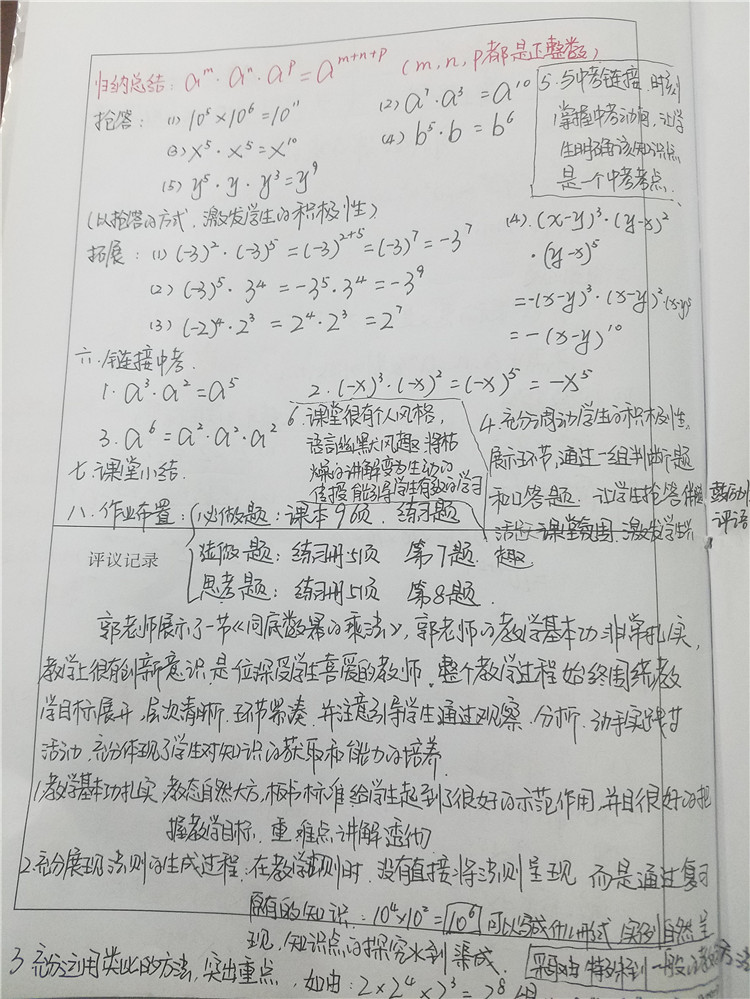 归纳总结：aᵐ·aⁿ·aᵖ=aᵐ⁺ⁿ⁺ᵖ （m,n,p都是正整数）
抢答：(1) 10⁵×10⁶=10¹¹ (2) a⁷·a³=a¹⁰
(3) x⁵·x⁵=x¹⁰ (4) b⁵·b=b⁶
(5) y⁵·y·y³=y⁹
5.与中考链接，时刻
掌握中考动向，让学
生明确该知识点
是一个中考考点.
(以抢答的方式，激发学生的积极性)
拓展：(1) (-3)²·(-3)⁵=(-3)²⁺⁵=(-3)⁷=-3⁷
(2) (-3)⁵·3⁴=-3⁵·3⁴=-3⁹
(3) (-2)⁴·2³=2⁴·2³=2⁷
(4). (x-y)³·(y-x)²
·(y-x)⁵
=-(x-y)³·(x-y)²·(x-y)⁵
=-(x-y)¹⁰
六.链接中考.
1. a³·a²=a⁵ 2. (-x)³·(-x)²=(-x)⁵=-x⁵
3. a⁶=a²·a²·a²
6.课堂很有个人风格，
语言幽默风趣，将枯
燥的讲解变为生动的
传授，能引导学生有效的学习
4.充分调动学生的积极性。
展示环节，通过一组判断题
和口答题，让学生抢答
鼓励性
评语
活跃课堂氛围，激发学生兴
趣
七.课堂小结.
八.作业布置：必做题：课本96页，练习题
评议记录
选做题：练习册51页 第7题.
思考题：练习册51页 第8题.
郭老师展示了一节《同底数幂的乘法》，郭老师的教学基本功非常扎实，
教学上很有创新意识，是一位深受学生喜爱的教师。整个教学过程始终围绕教
学目标展开，层次清晰，环节紧凑，并注意引导学生通过观察、分析、动手实践等
活动，充分体现了学生对知识的获取和能力的培养.
1.教学基本功扎实，教态自然大方，板书标准给学生起到了很好的示范作用，并且很好的把
握教学目标，重难点讲解透彻
2.充分展现了法则的生成过程，在教学法则时，没有直接将法则呈现，而是通过复习
原有的知识：10⁴×10²=10⁶ 可以写成什么形式，实例自然呈
现，知识点的探究水到渠成.
3.充分运用类比的方法，突出重点，如由：2×2⁴×2³=2⁸
采取由特殊到一般的教学方法